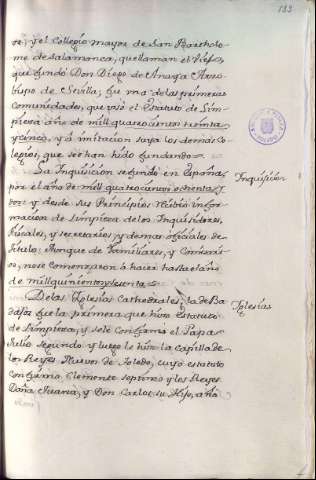 133
y el Collegio mayor de San Bartholo-
me de Salamanca, que llaman el Viejo,
que fundò Don Diego de Anaya Arzo-
bispo de Sevilla, fue una de las primeras
Comunidades, que usò el Estatuto de Lim-
pieza año de mil quatrocientos treinta
y cinco, y à imitacion suya los demas Co-
legios, que se han hido fundando.
La Inquisicion se fundò en España
por el año de mil quatrocientos ochenta y
tres; y desde sus Principios huvo infor-
macion de Limpieza de los Inquisidores,
fiscales, y secretarios, y demas oficiales de
titulo: Aunque de Familiares, y Comisari-
os, no se comenzaron à hacer hasta el año
de mill quinientos y setenta
Inquisicion
De las Yglesias Cathedrales, la de Ba-
dajoz fue la primera que hizo Estatuto
de Limpieza, y se lo confirmò el Papa
Julio segundo y luego le hizo la Capilla de
los Reyes Nuevos de Toledo, cuyo estatuto
confirmò Clemente septimo y los Reyes
Doña Juana, y Don Carlos su Hijo, año
Yglesias